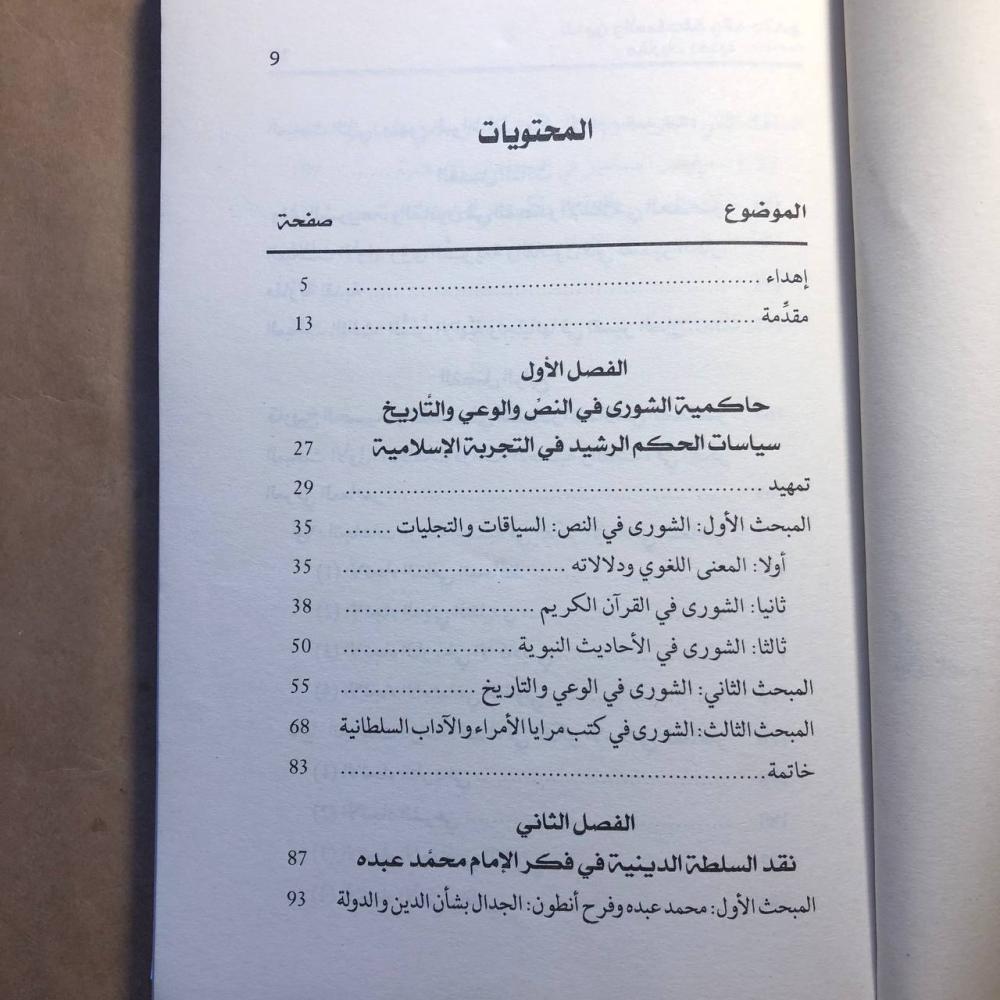 9
المحتويات
الموضوع صفحة
إهداء ........................................ 5
مقدِّمة ........................................ 13
الفصل الأول
حاكمية الشورى في النصّ والوعي والتّاريخ
سياسات الحكم الرشيد في التجربة الإسلامية 27
تمهيد ........................................ 29
المبحث الأول: الشورى في النص: السياقات والتجليات ....... 35
أولا: المعنى اللغوي ودلالاته ........................ 35
ثانيا: الشورى في القرآن الكريم ........................ 38
ثالثا: الشورى في الأحاديث النبوية ..................... 50
المبحث الثاني: الشورى في الوعي والتاريخ ................. 55
المبحث الثالث: الشورى في كتب مرايا الأمراء والآداب السلطانية 68
خاتمة ........................................ 83
الفصل الثاني
نقد السلطة الدينية في فكر الإمام محمّد عبده 87
المبحث الأول: محمد عبده وفرح أنطون: الجدال بشأن الدين والدولة 93